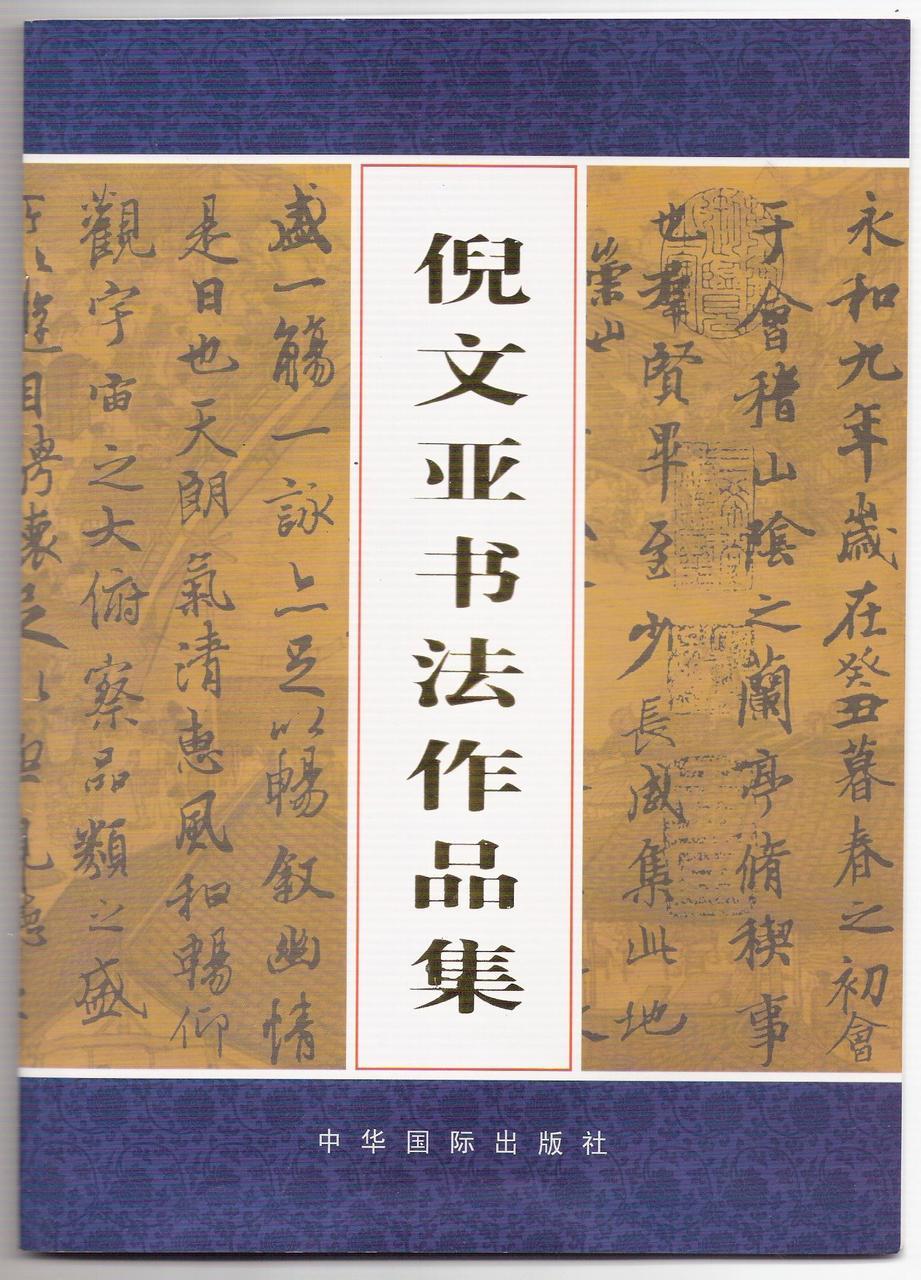 倪文亚书法作品集
永和九年歲在癸丑暮春之初會
于會稽山陰之蘭亭脩稧事
也羣賢畢至少長咸集此地
崇山
盛一觴一詠亦足以暢叙幽情
是日也天朗氣清惠風和暢仰
觀宇宙之大俯察品類之盛
所以遊目騁懷足以
中华国际出版社